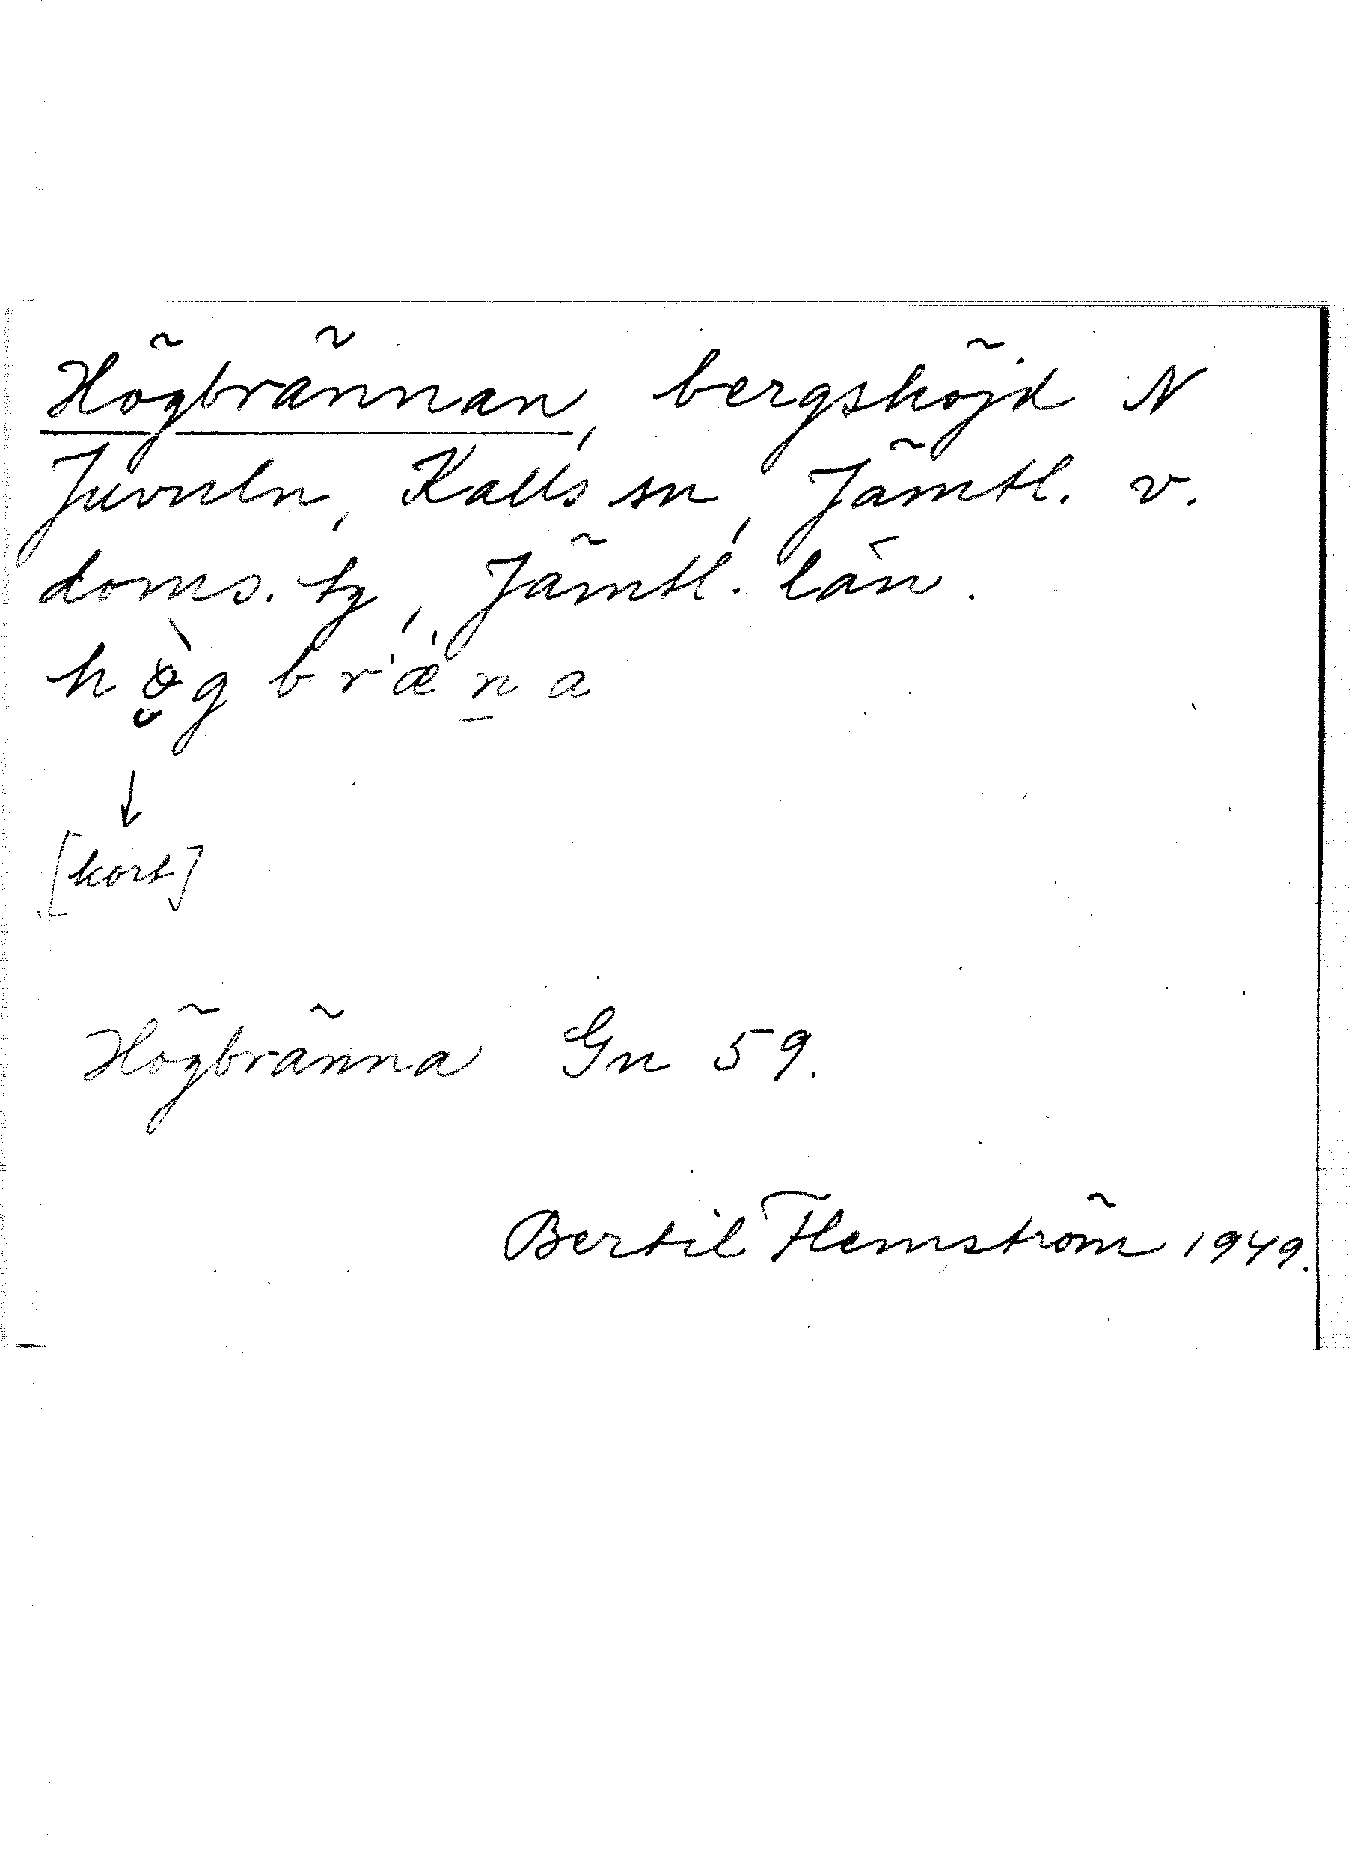 Högbrännan, bergshöjd N
Juvuln, Kalls sn, Jämtl. v.
doms. tg, Jämtl. län.
hö̀gbrǽna
↓
[kort]
Högbränna Gn 59.
Bertil Flemström 1949.